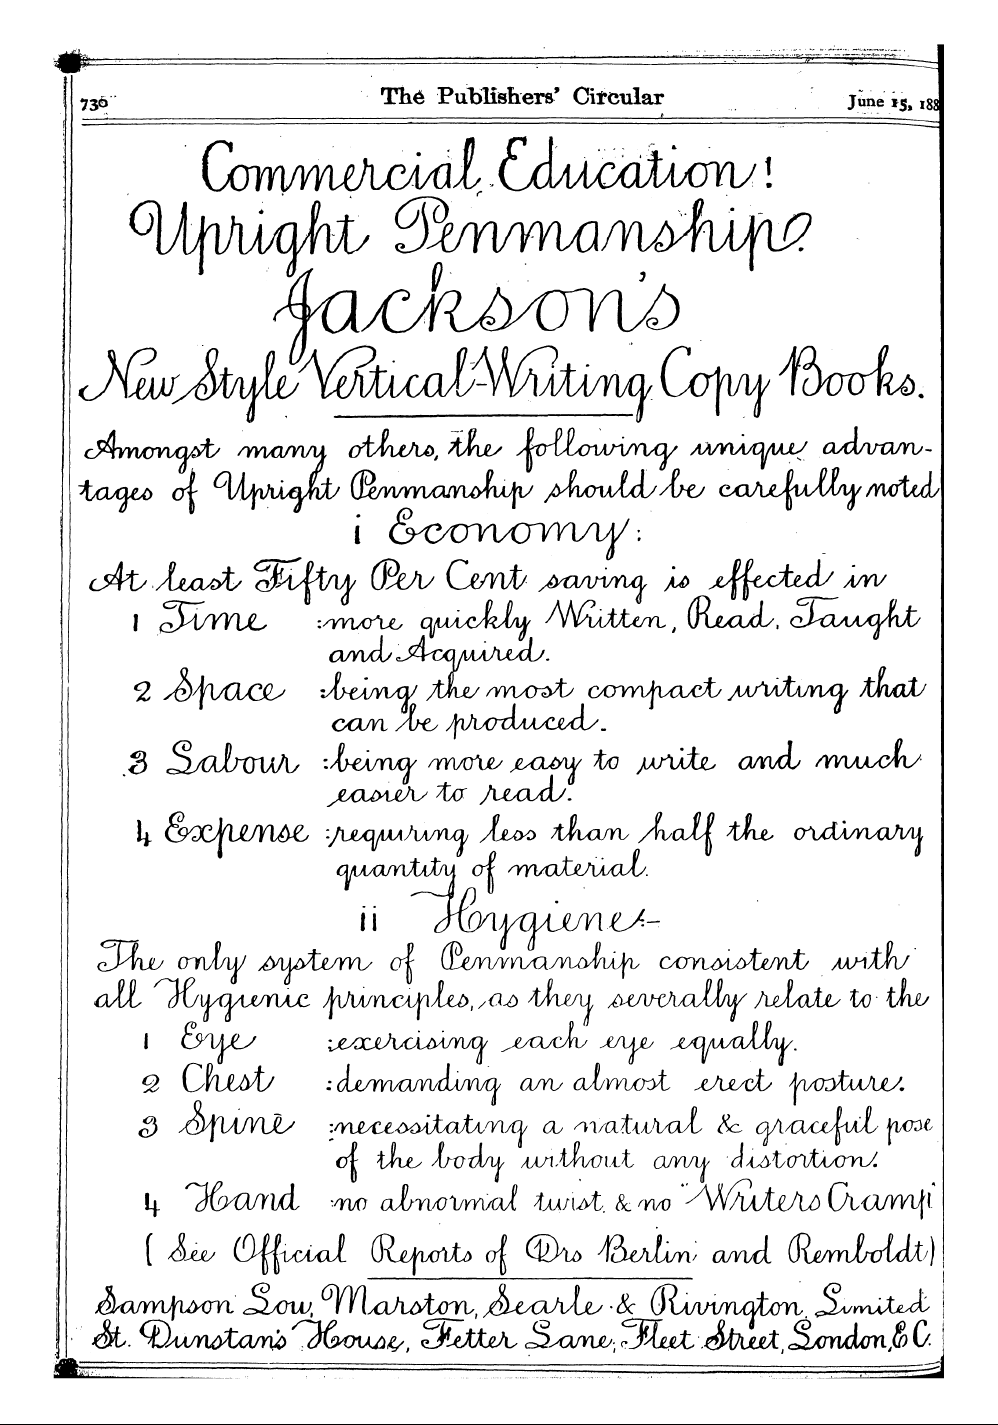 730
The Publishers' Circular
June 15, 188
Commercial Education!
Upright Penmanship?
Jackson's
New Style Vertical-Writing Copy Books.
Amongst many others, the following unique advan-
tages of Upright Penmanship should be carefully noted
i Economy:
At least Fifty Per Cent saving is effected in
1 Time :more quickly Written, Read, Taught
and Acquired.
2 Space :being the most compact writing that
can be produced.
3 Labour :being more easy to write and much
easier to read.
4 Expense :requiring less than half the ordinary
quantity of material.
ii Hygiene:-
The only system of Penmanship consistent with
all Hygienic principles, as they severally relate to the
1 Eye :exercising each eye equally.
2 Chest :demanding an almost erect posture.
3 Spine :necessitating a natural & graceful pose
of the body without any distortion.
4 Hand :no abnormal twist, & no "Writers Cramp
(See Official Reports of Drs Berlin and Remboldt)
Sampson Low, Marston, Searle & Rivington, Limited
St. Dunstan's House, Fetter Lane, Fleet Street, London, E C.